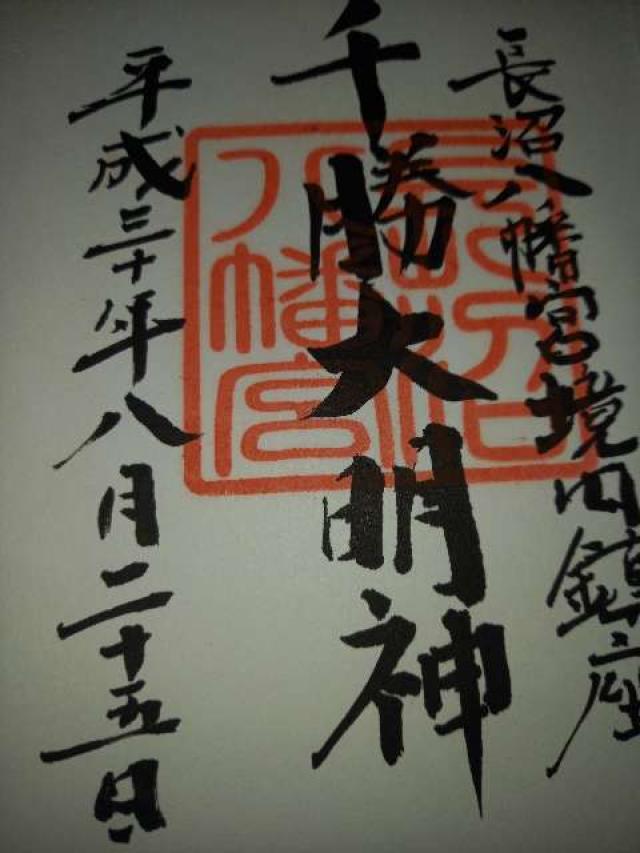 長沼八幡宮境内鎮座
千勝大明神
平成三十年八月二十五日
長沼
八幡宮